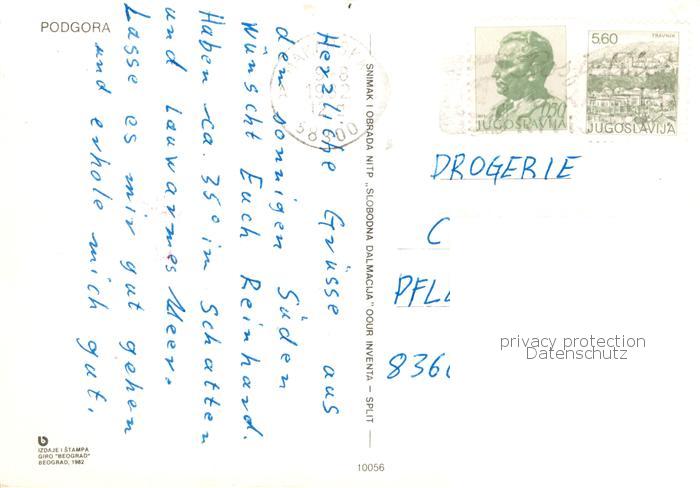 PODGORA
Herzliche Grüsse aus
dem sonnigen Süden
wünscht Euch Reinhard.
Haben ca. 35° im Schatten
und lauwarmes Meer.
Lasse es mir gut gehen
und erhole mich gut.
SNIMAK I OBRADA NITP „SLOBODNA DALMACIJA" OOUR INVENTA – SPLIT
JUGOSLAVIJA
5.60
TRAVNIK
JUGOSLAVIJA
58300
DROGERIE
C
PFL
836
privacy protection
Datenschutz
IZDAJE I ŠTAMPA
GIRO "BEOGRAD"
BEOGRAD, 1982
10056